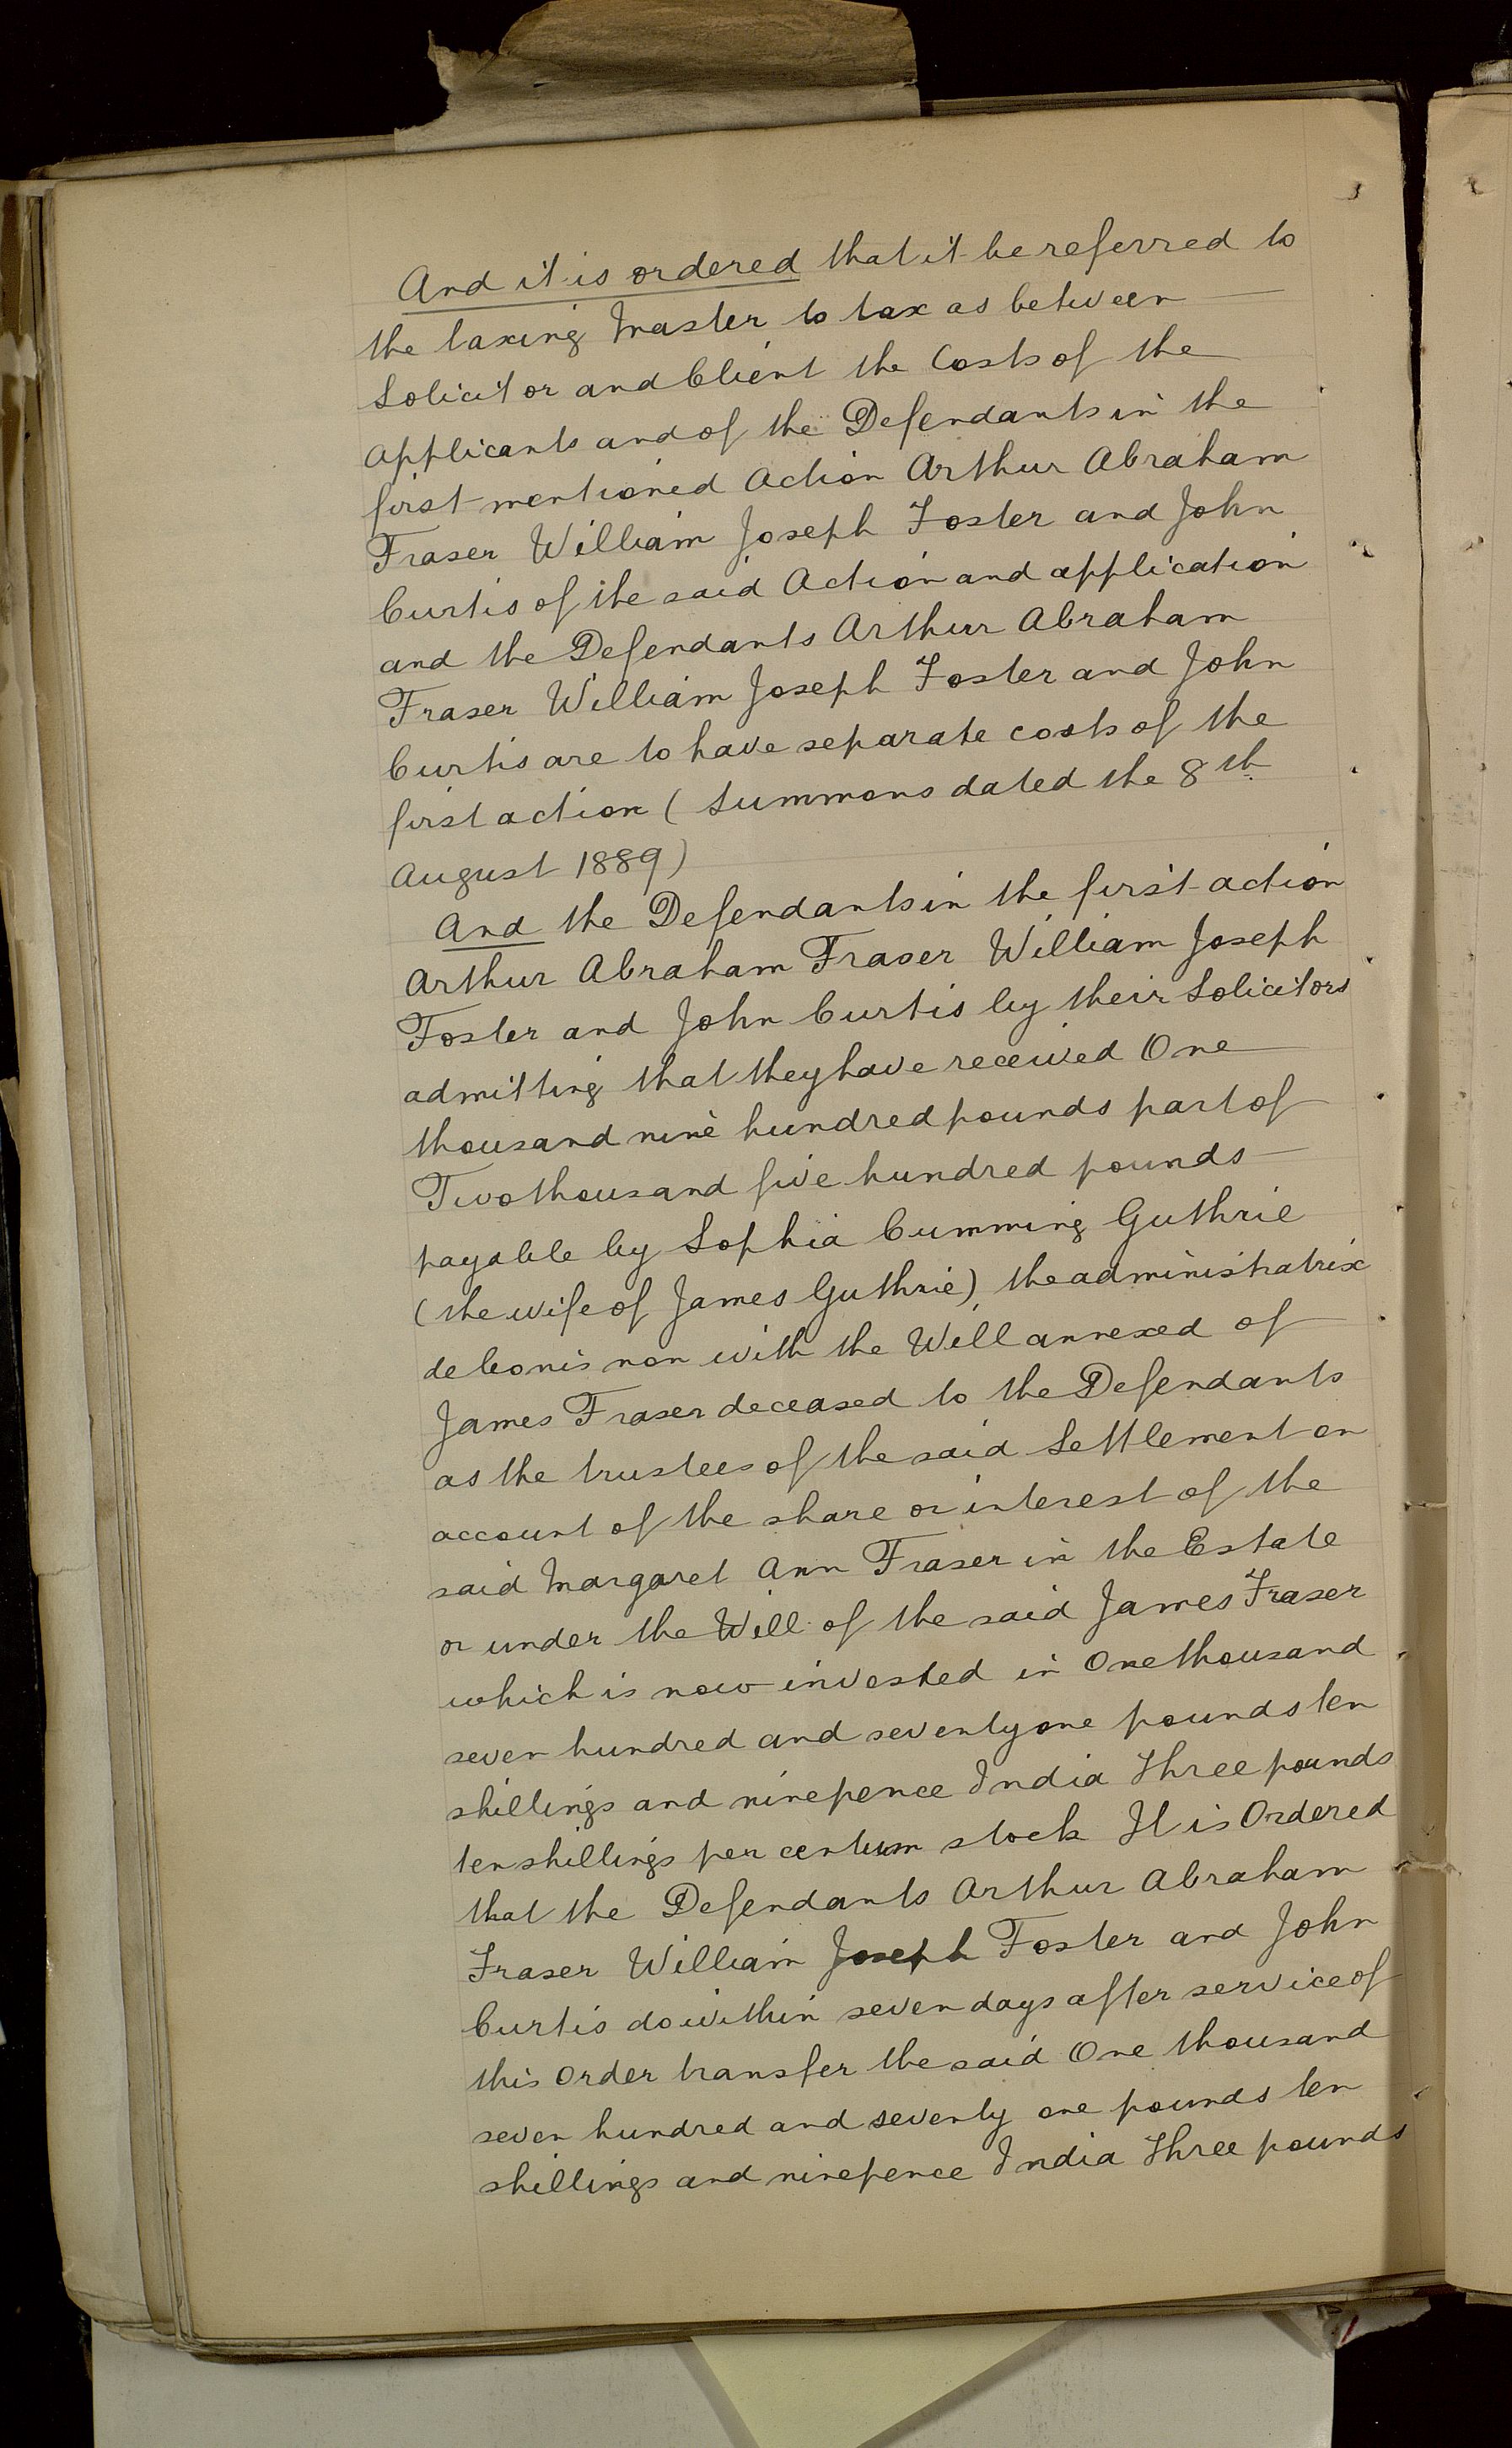 And it is ordered that it be referred to
the taxing Master to tax as between
Solicitor and Client the Costs of the
Applicants and of the Defendants in the
first mentioned Action Arthur Abraham
Fraser William Joseph Foster and John
Curtis of the said Action and application
and the Defendants Arthur Abraham
Fraser William Joseph Foster and John
Curtis are to have separate costs of the
first action (Summons dated the 8th
August 1889)
And the Defendants in the first action
Arthur Abraham Fraser William Joseph
Foster and John Curtis by their Solicitors
admitting that they have received One
thousand nine hundred pounds part of
Two thousand five hundred pounds
payable by Sophia Cumming Guthrie
(the wife of James Guthrie) the administratrix
de bonis non with the Will annexed of
James Fraser deceased to the Defendants
as the trustees of the said Settlement on
account of the share or interest of the
said Margaret Ann Fraser in the Estate
or under the Will of the said James Fraser
which is now invested in One thousand
seven hundred and seventy one pounds ten
shillings and ninepence India Three pounds
ten shillings per centum stock It is Ordered
that the Defendants Arthur Abraham
Fraser William Joseph Foster and John
Curtis do within seven days after service of
this Order transfer the said One thousand
seven hundred and seventy one pounds ten
shillings and ninepence India Three pounds